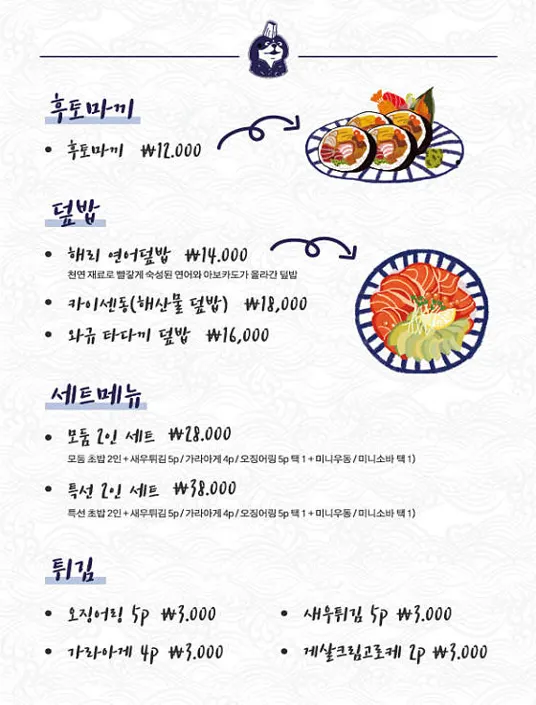 후토마끼
• 후토마끼 ₩12.000
덮밥
• 해리 연어덮밥 ₩14.000
천연 재료로 빨갛게 숙성된 연어와 아보카도가 올라간 덮밥
• 카이센동(해산물 덮밥) ₩18,000
• 와규 타다끼 덮밥 ₩16,000
세트메뉴
• 모둠 2인 세트 ₩28.000
모둠 초밥 2인 + 새우튀김 5p / 가라아게 4p / 오징어링 5p 택 1 + 미니우동 / 미니소바 택 1)
• 특선 2인 세트 ₩38.000
특선 초밥 2인 + 새우튀김 5p / 가라아게 4p / 오징어링 5p 택 1 + 미니우동 / 미니소바 택 1)
튀김
• 오징어링 5p ₩3.000
• 새우튀김 5p ₩3.000
• 가라아게 4p ₩3.000
• 게살크림고로케 2p ₩3.000